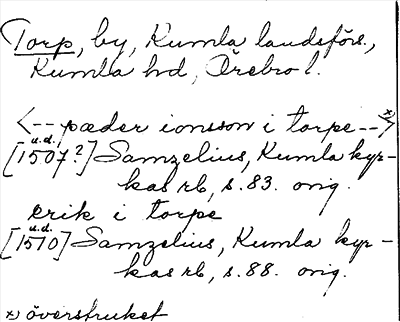 Torp, by, Kumla landsförs.,
Kumla hd, Örebro l.
<--pæder ionsson i torpe-->x)
u.d.
[1507?] Samzelius, Kumla kyr-
kas rb, s. 83. orig.
erik i torpe
u.d.
[1510] Samzelius, Kumla kyr-
kas rb, s. 88. orig.
x) överstruket